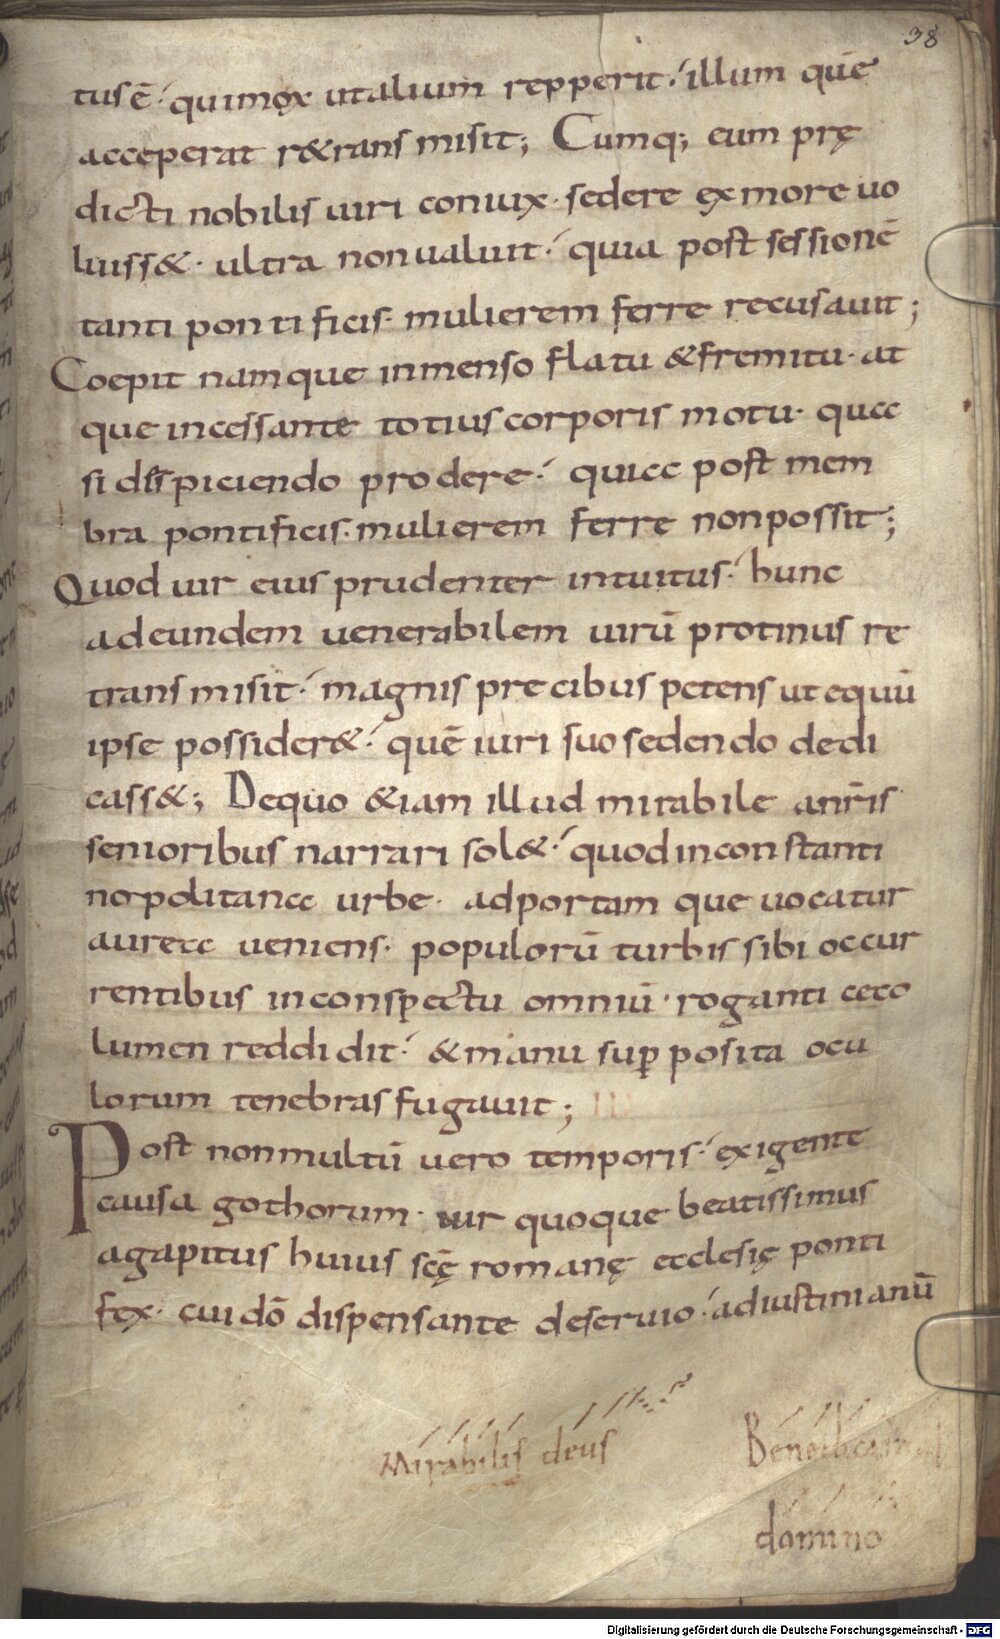 38
tus ē· qui mox ut alium repperit· illum quē
acceperat r&rans misit; Cumq; eum prę
dicti nobilis uiri coniux· sedere ex more uo
luiss&· ultra non ualuit· quia post sessionē
tanti pontificis· mulierem ferre recusauit;
Coepit namque inmenso flatu & fremitu· at
que incessante totius corporis motu· qua
si despiciendo prodere· quia post mem
bra pontificis· mulierem ferre non possit;
Quod uir eius prudenter intuitus· hunc
ad eundem uenerabilem uirū protinus re
transmisit· magnis precibus petens ut equū
ipse possider&· quē iuri suo sedendo dedi
cass&; De quo &iam illud mirabile a nr̄is
senioribus narrari sol&· quod in constanti
nopolitana urbe· ad portam que uocatur
aurea ueniens· populorū turbis sibi occur
rentibus in conspectu omniū· roganti ceco
lumen reddidit· & manu suꝑ posita ocu
lorum tenebras fugauit;
Post non multū uero temporis· exigente
causa gothorum· uir quoque beatissimus
agapitus huius scę̄ romanę ecclesię ponti
fex· cui dō dispensante deseruio· ad iustinianū
Mirabilis deus
domino
Digitalisierung gefördert durch die Deutsche Forschungsgemeinschaft - DFG